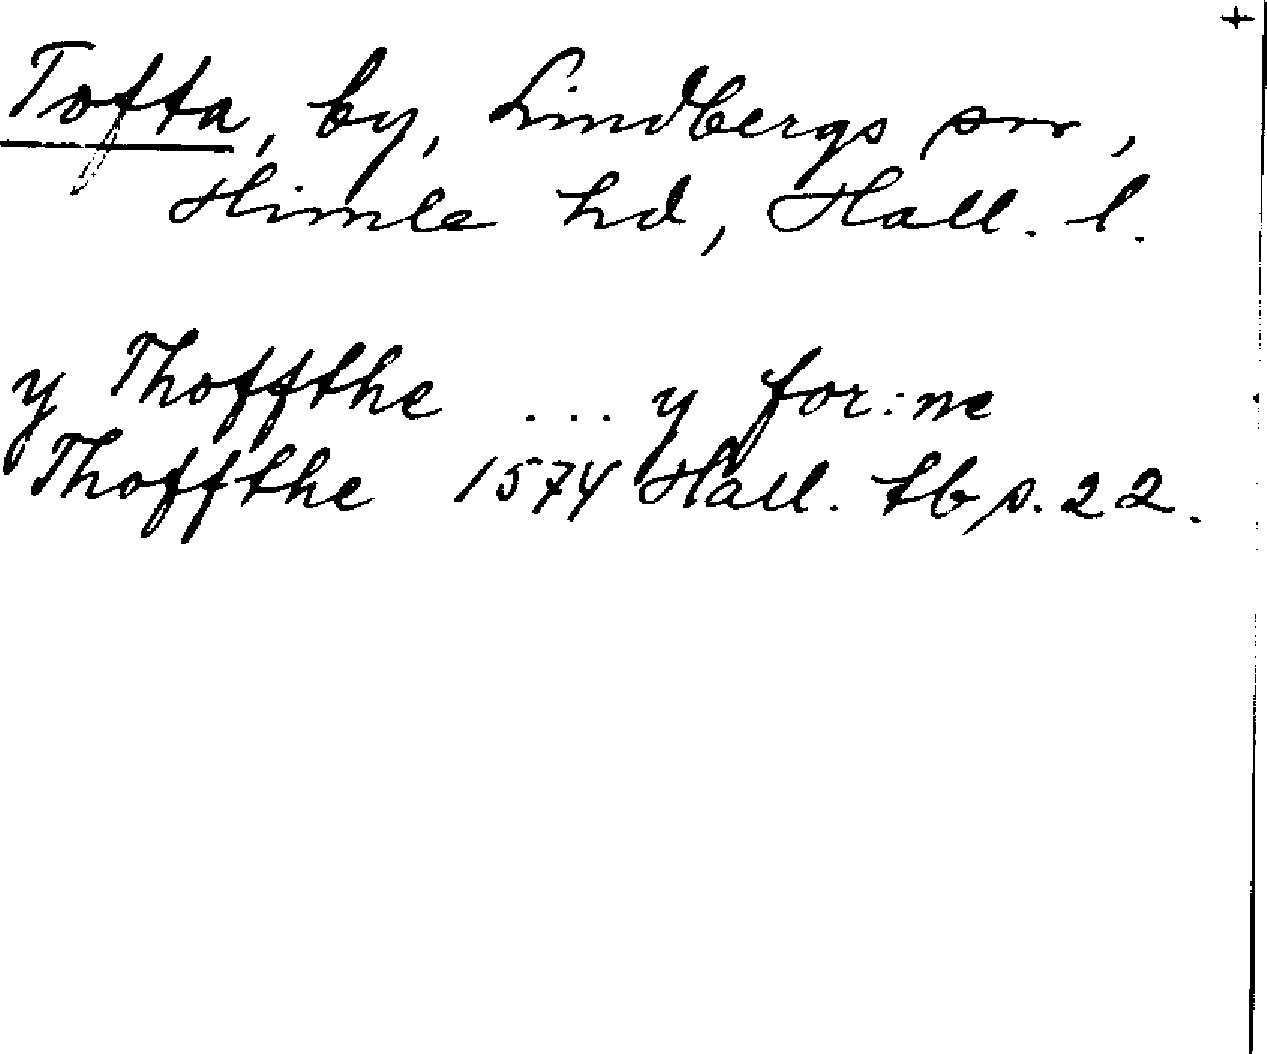 +
Tofta, by, Lindbergs sn,
Himle hd, Hall. l.
y Thoffthe ... y for:ne
Thoffthe 1574 Hall. tb s. 22.